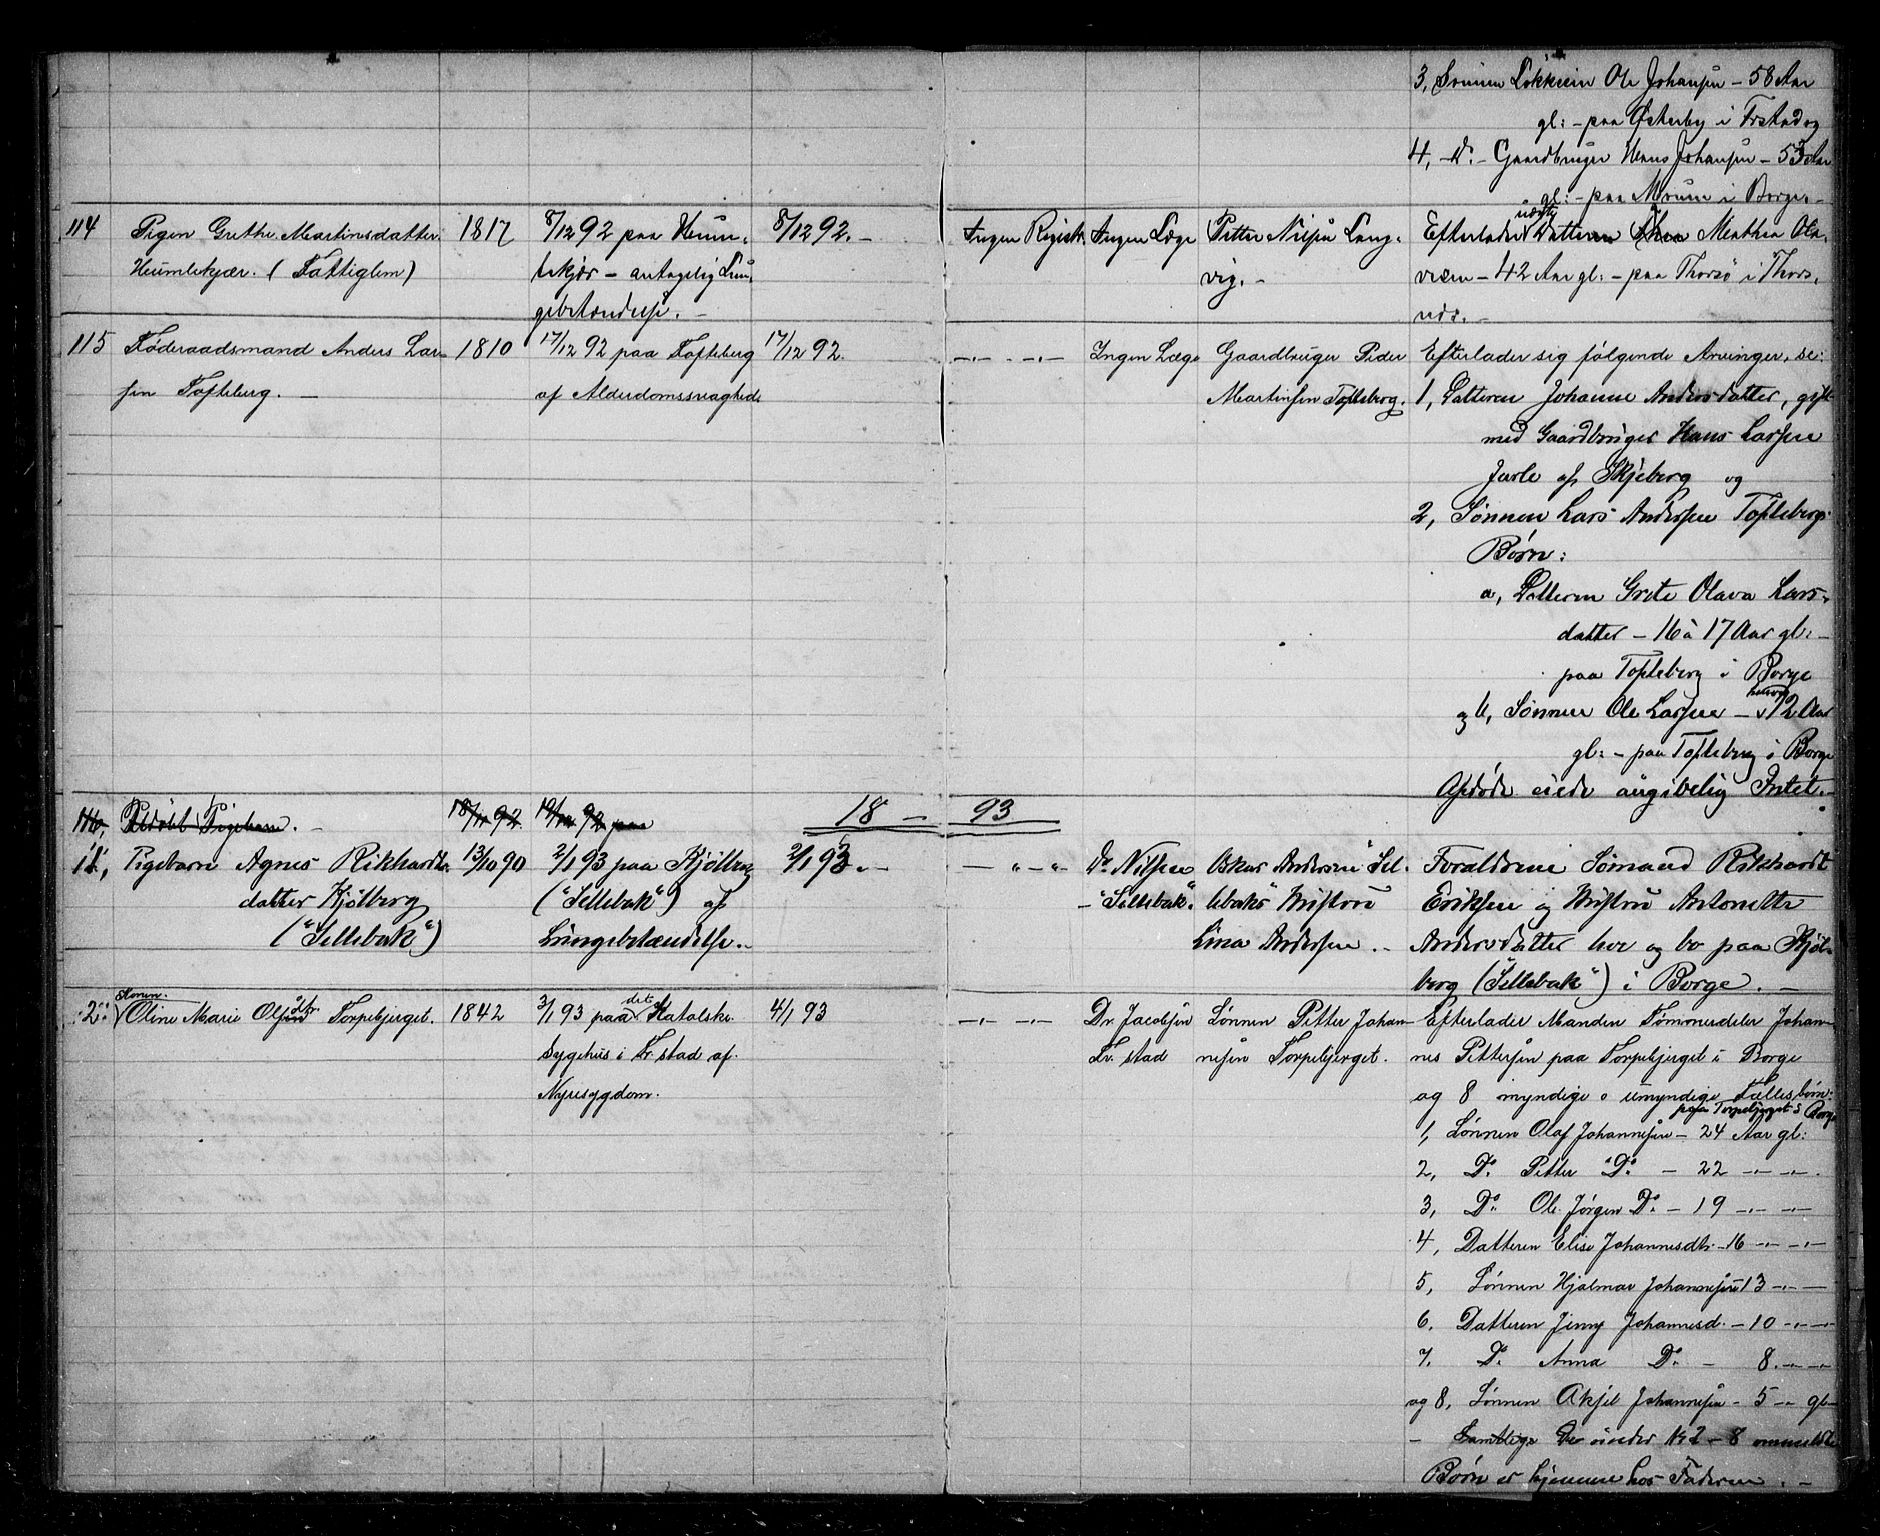 3, Sønnen Lokkeein Ole Johansen - 58 Aar
gl: - paa Østerby i Frstad og
4, - Do. - Gaardbruger Hans Johansen - 53 Aar
gl: - paa Moum i Borge -
114 Pigen Grethe Martinsdatter 1817 8/12 92 paa Heum- 8/12 92. - Ingen Registr. Ingen Læge Petter Nilsen Lang- Efterlader Datteren Mathea Ola-
Heumlekjær. (Fattiglem) lekjær - antagelig Lun- vig. - visen - 42 Aar gl: - paa Thorsø i Thors-
gebetændelse. - nes. -
115 Føderaadsmand Anders Lar- 1810 17/12 92 paa Tofteberg 17/12 92. -„- -„- Ingen Læge Gaardbruger Peder Efterlader sig følgende Arvinger, se:
sen Tofteberg. - af Alderdomssvaghed. Martinsen Tofteberg. 1, Datteren Johanne Andersdatter, gift
med Gaardbruger Hans Larsen
Jarle af Skjeberg og
2, Sønnen Lars Andersen Toftebergs
Børn:
a, Datteren Grete Olava Lars-
datter - 16 à 17 Aar gl: -
paa Tofteberg i Borge
og b, Sønnen Ole Larsen - 12 Aar
gl: - paa Tofteberg i Borge
Afdøde eiede angivelig Intet. -
116, Udøbt Pigebarn. - 18/11 92. 19/12 92 paa 18 - 93
1, Pigebarn Agnes Rikhards- 13/10 90 2/1 93 paa Kjølberg 2/1 93. - - „ - „ Dr Nilsen Oskar Andersen Sel- Forældrene Sømand Rikhardt
datter Kjølberg ("Sellebak") af - "Sellebak". lebaks Hustru Eriksen og Hustru Antonette
("Sellebak") Lungebetændelse. - Lina Andersen. - Andersdatter her og bo paa Kjøl-
berg ("Sellebak") i Borge. -
2. Konen Oline Marie Olsdtr. Torpebjerget. 1842 3/1 93 paa det Katolske 4/1 93 -„- -„- Dr. Jacobsen Sønnen Petter Johan- Efterlader Manden Tømmerdeler Johan-
Sygehus i Fr. stad af Fr. stad nesen Torpebjerget. nes Pettersen paa Torpebjerget i Borge
Nyresygdom. og 8 myndige o umyndige Fællesbørn:
paa Torpebjerget i Borge
1, Sønnen Olaf Johannesen - 24 Aar gl:
2, Do. Petter Do. - 22 -„- -„-
3, Do. Ole Jørgen Do. - 19 -„- -„-
4, Datteren Elise Johannesdtr. - 16 -„- -„-
5, Sønnen Hjalmar Johannesen 13 -„- -
6. Datteren Jenny Johannesd. - 10 -„- -„-
7. Do. Anna Do. - 8. -„- -„-
og 8, Sønnen Aksel Johannesen - 5 -„- gl-
- Samtlige De under No 2 - 8 ommeldte
Børn er hjemme hos Faderen. -